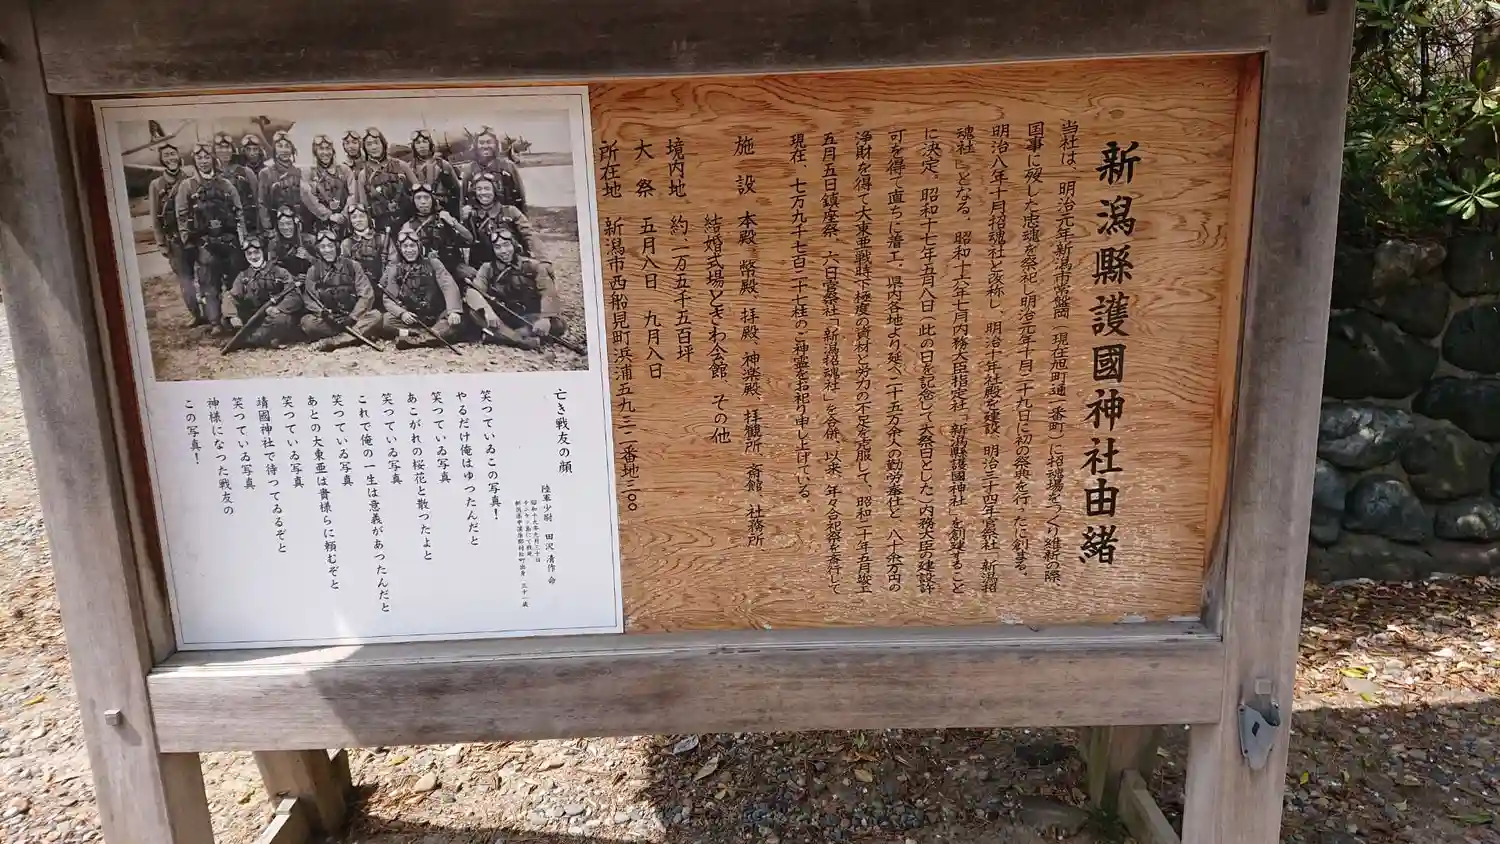 新潟縣護國神社由緒
当社は、明治元年新潟市常盤岡（現在旭町通一番町）に招魂場をつくり維新の際、
国事に歿した忠魂を祭祀、明治元年十月二十九日に初の祭典を行ったに創まる。
明治八年十月招魂社と改称し、明治十年社殿を建設、明治三十四年官祭社「新潟招
魂社」となる。昭和十六年七月内務大臣指定社「新潟縣護國神社」を創建すること
に決定。昭和十七年五月八日（此の日を記念して大祭日とした）内務大臣の建設許
可を得て直ちに着工。県内各地より延べ二十五万余人の勤労奉仕と、八十余万円の
浄財を得て大東亜戦時下極度の資材と労力の不足を克服して、昭和二十年五月竣工
五月五日鎮座祭、六日官祭社「新潟招魂社」を合併、以来、年々合祀祭を斎行して
現在、七万九千七百二十七柱のご神霊をお祀り申し上げている。
施設 本殿、幣殿、拝殿、神楽殿、拝観所、斎館、社務所、
結婚式場ときわ会館、その他
境内地 約、一万五千五百坪
大祭 五月八日 九月八日
所在地 新潟市西船見町浜浦五九三二番地三〇〇
亡き戦友の顔
陸軍少尉 田沢 清作 命
昭和十九年九月三十日
笑っているこの写真！
やるだけ俺はやったんだと
笑っている写真
あこがれの桜花と散ったよと
笑っている写真
これで俺の一生は意義があったんだと
笑っている写真
あとの大東亜は貴様らに頼むぞと
笑っている写真
靖國神社で待ってゐるぞと
笑っている写真
神様になった戦友の
この写真！